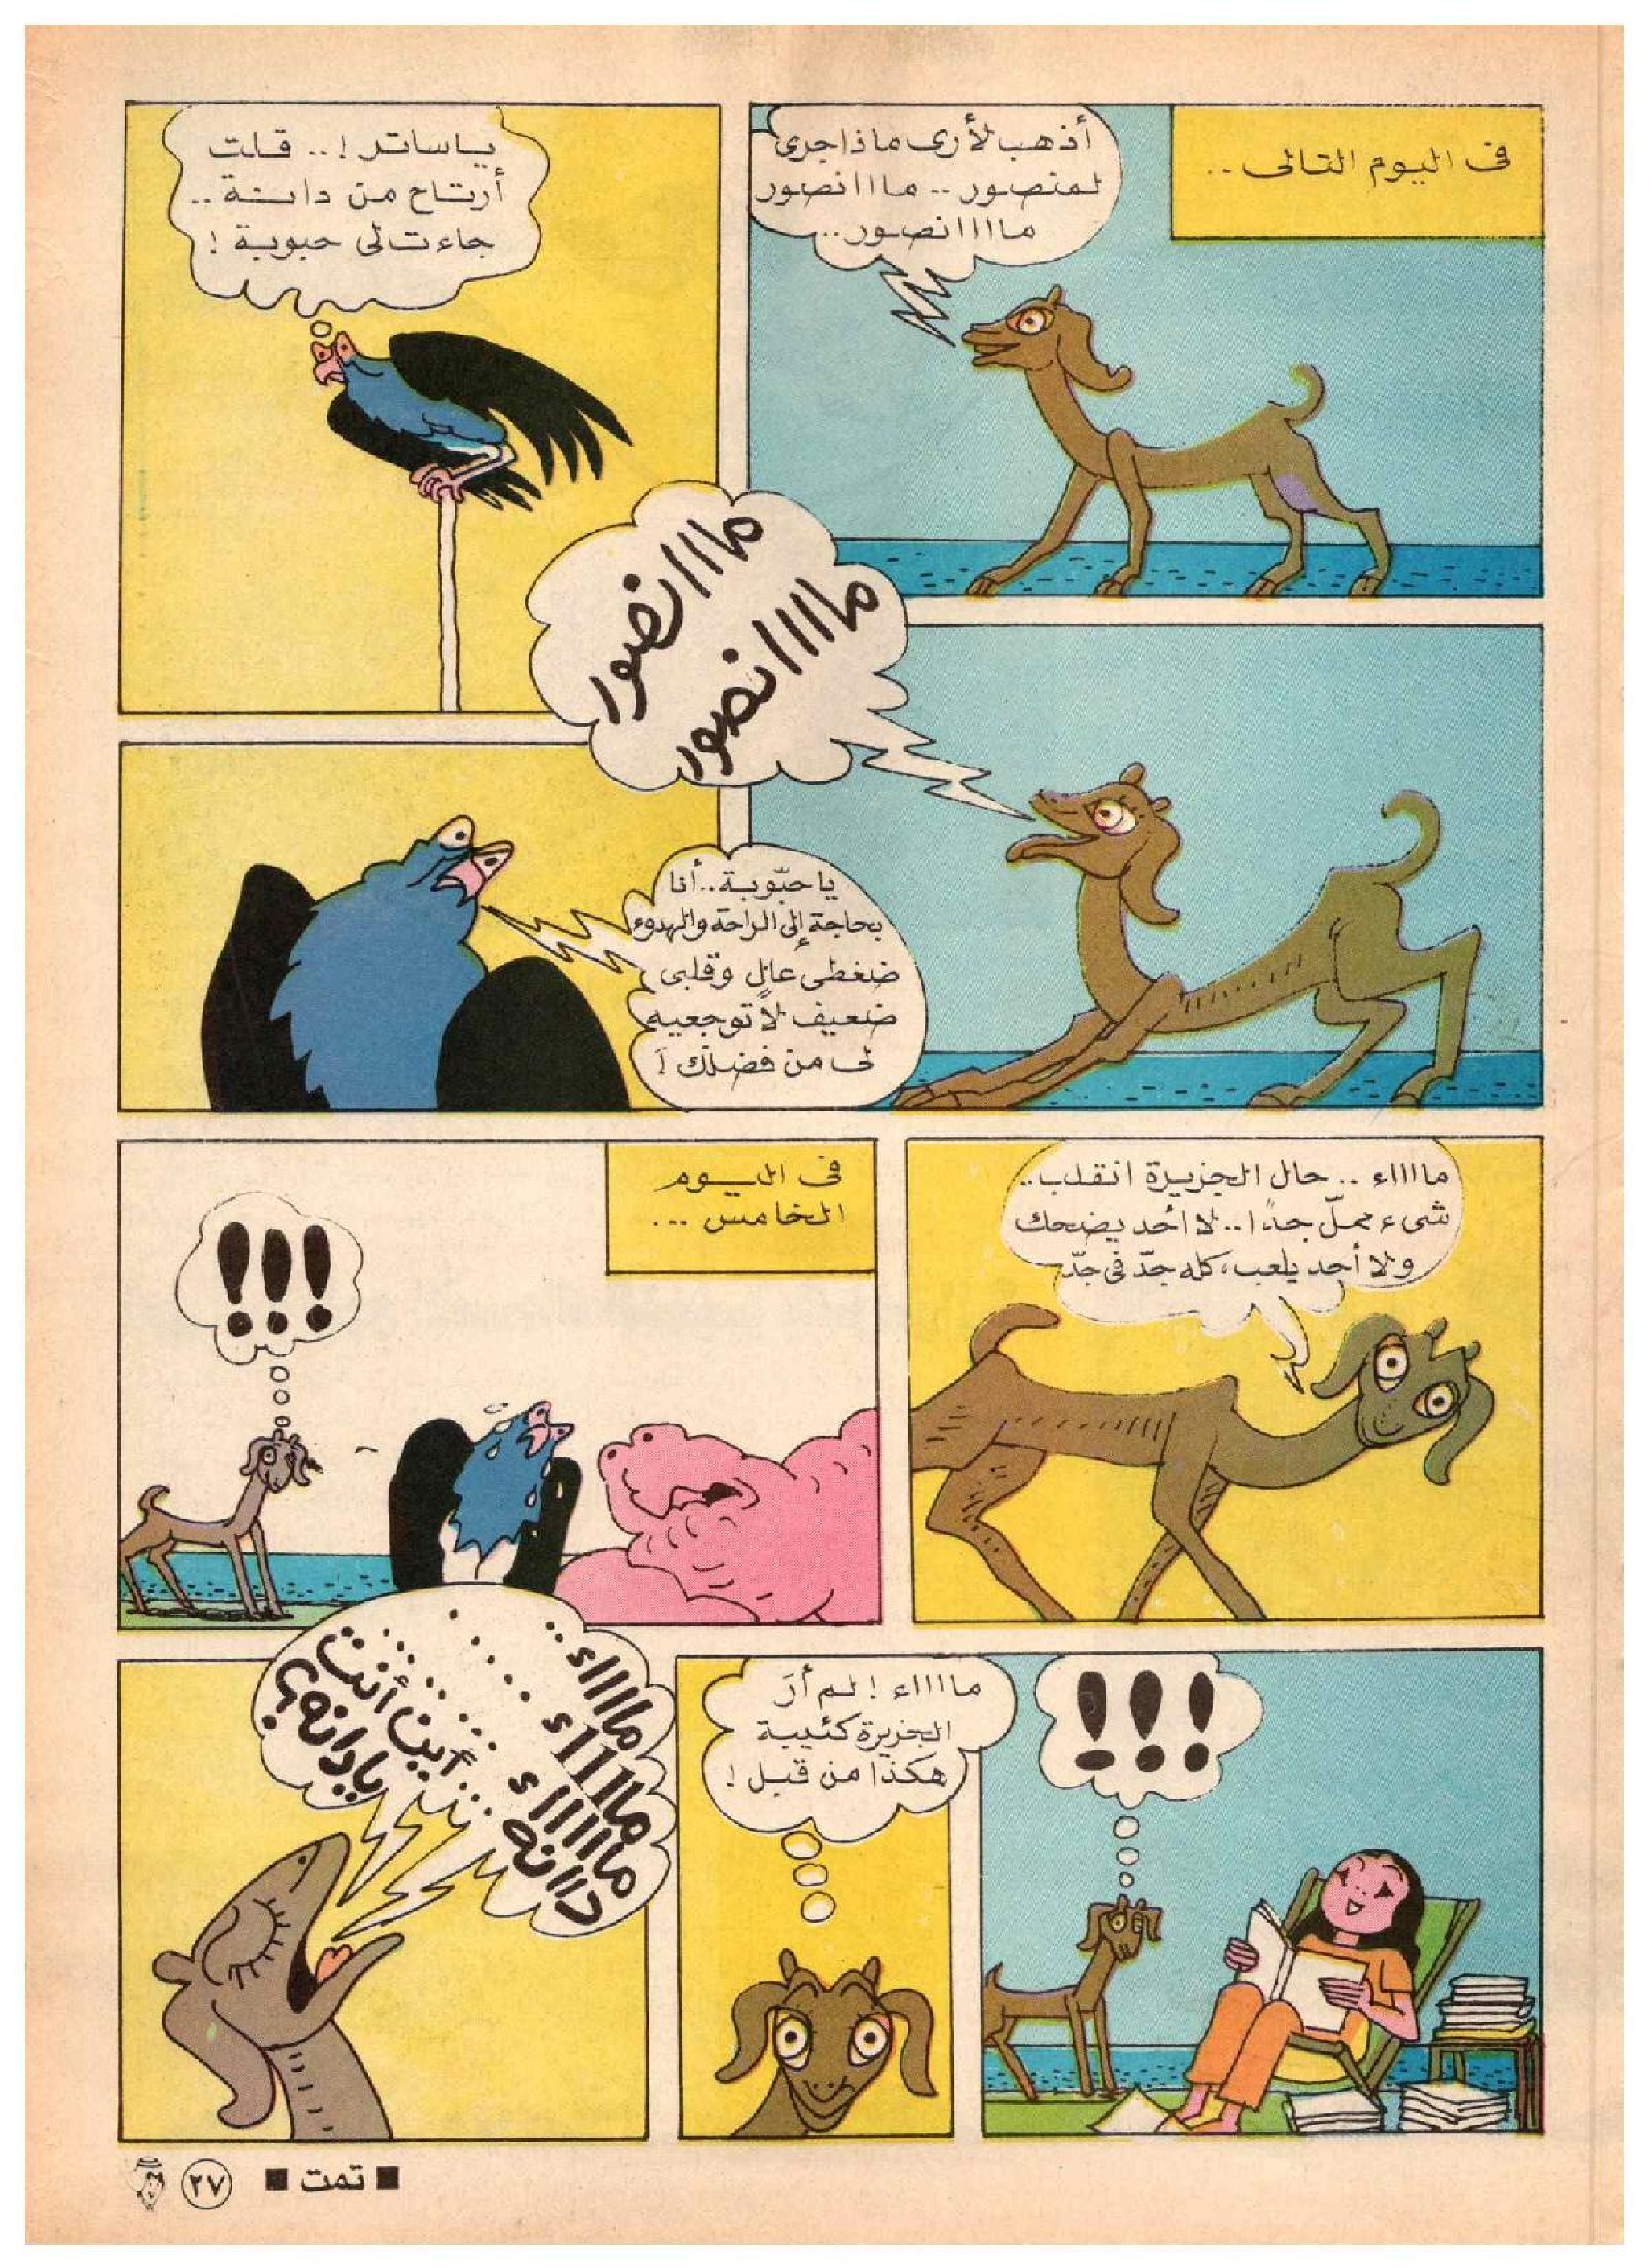 فى اليوم التالى ..
أذهب لأرى ماذا جرى
لمنصور .. مااانصور
ماااانصور..
ياساتر !.. قلت
أرتاح من دانة ..
جاءت لى حبوبة !
مااانصور
ماااانصور
يا حبّوبة.. أنا
بحاجة إلى الراحة والهدوء
ضغطى عالٍ وقلبى
ضعيف لا توجعيه
لى من فضلك !
مااااء .. حال الجزيرة انقلب..
شىء مملّ جدًا.. لا أحد يضحك
ولا أحد يلعب، كله جدّ فى جدّ
فى اليوم
الخامس ...
!!!
!!!
مااااء ! لم أرَ
الجزيرة كئيبة
هكذا من قبل !
مااااء ..
مااااء ....
ماااااء ....
داانه ....
أين أنت
يادانه ؟
■ تمت ■
٢٧